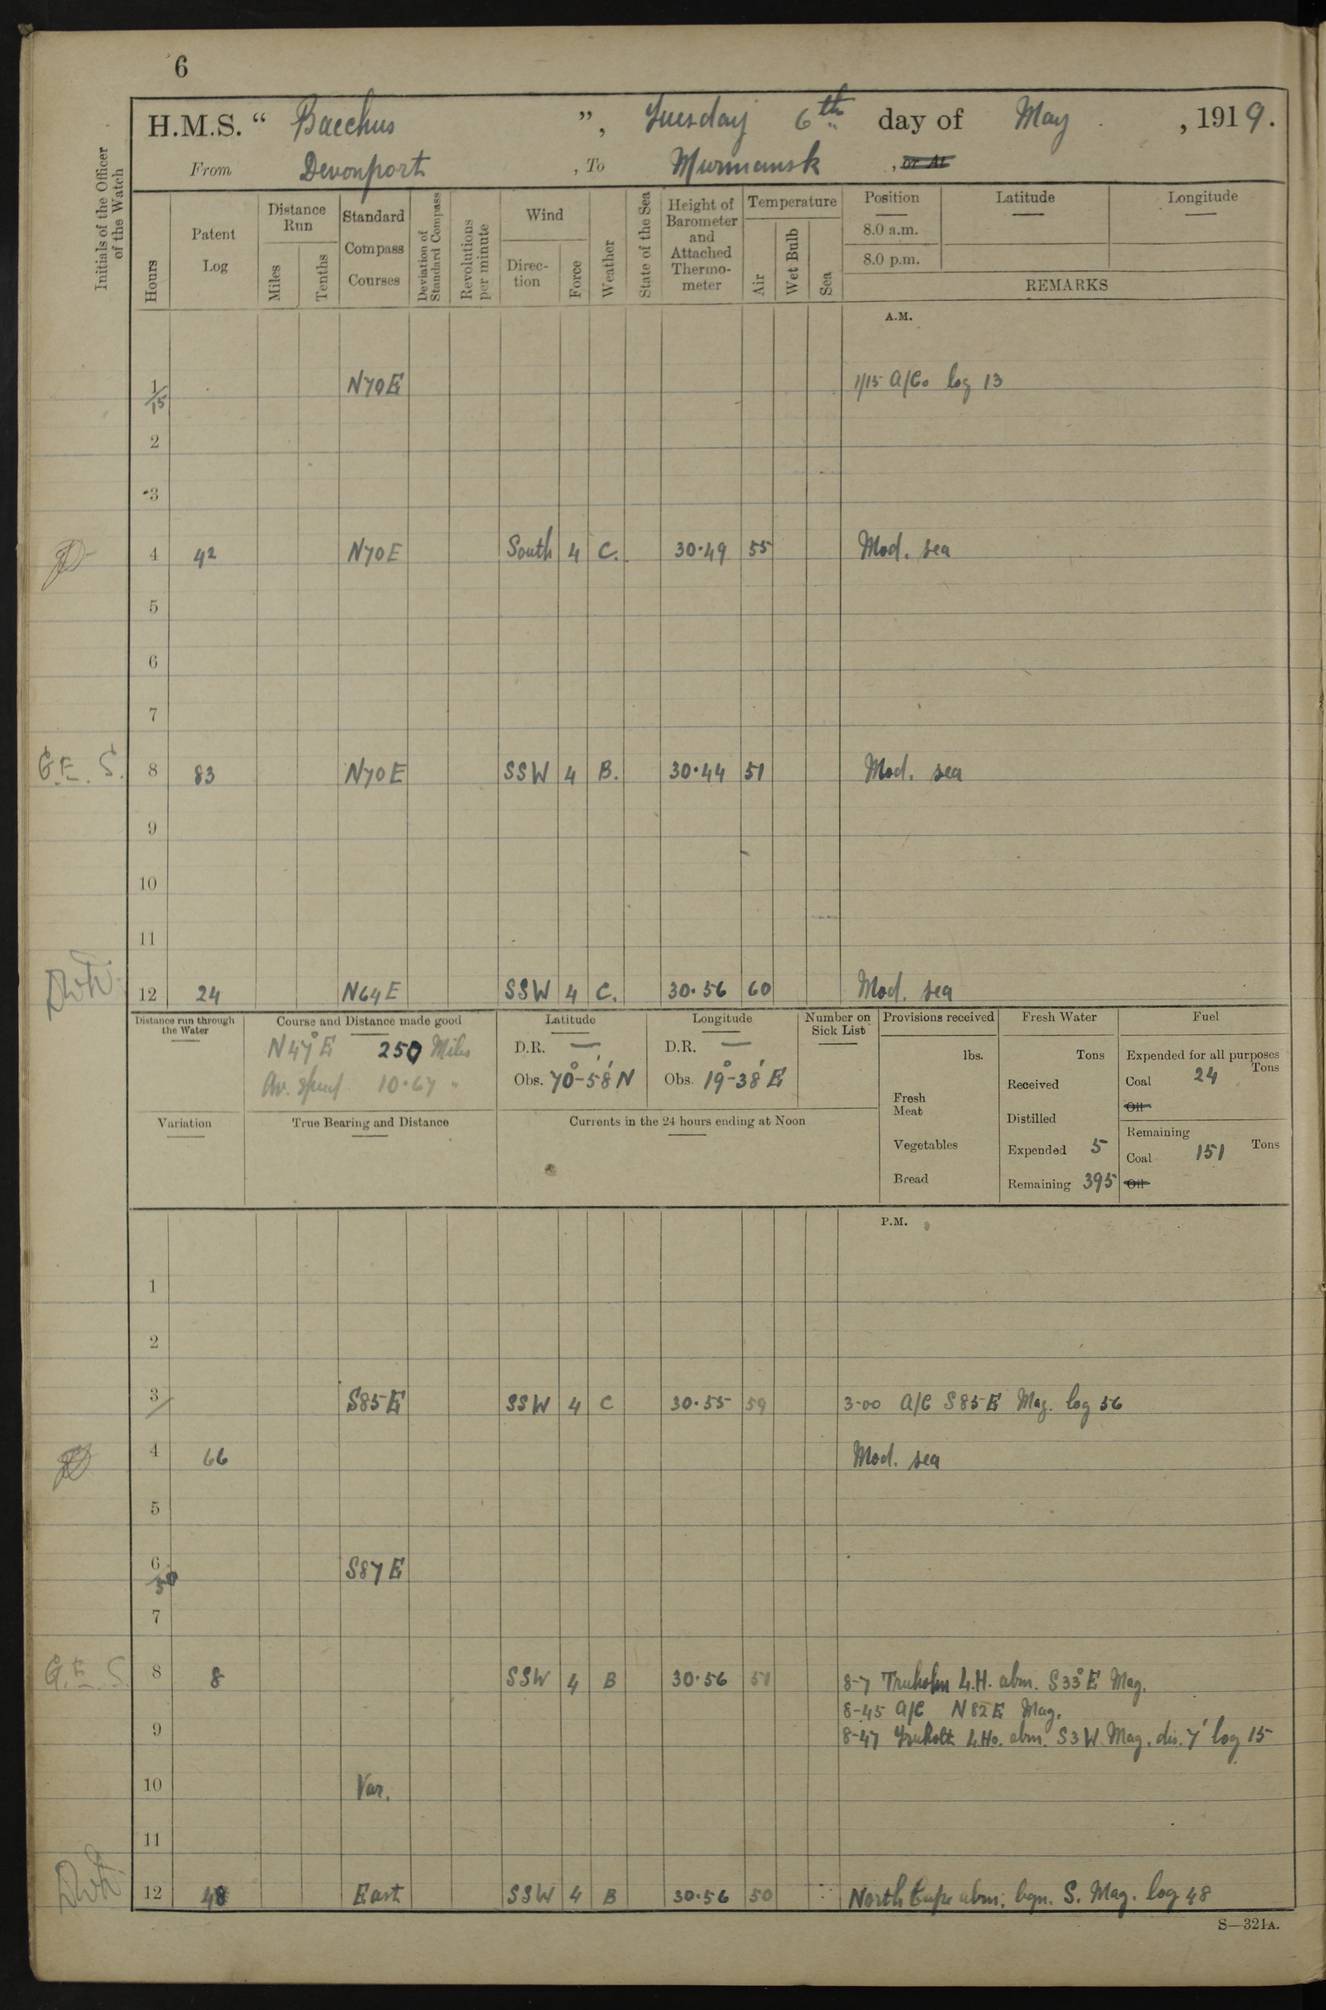 6
H.M.S. “ Bacchus ”, Tuesday 6th day of May , 1919.
From Devonport , To Murmansk , or At
Initials of the Officer of the Watch
Hours
Patent Log
Distance Run
Miles
Tenths
Standard Compass Courses
Deviation of Standard Compass
Revolutions per minute
Wind
Direction
Force
Weather
State of the Sea
Height of Barometer and Attached Thermometer
Temperature
Air
Wet Bulb
Sea
Position
8.0 a.m.
8.0 p.m.
Latitude
Longitude
REMARKS
A.M.
1/15 N70E 1/15 A/Co log 13
2
3
4 42 N70E South 4 C. 30.49 55 Mod. sea
5
6
7
G.E.S. 8 83 N70E SSW 4 B. 30.44 51 Mod. sea
9
10
11
12 24 N64E SSW 4 C. 30.56 60 Mod. sea
Distance run through the Water
Course and Distance made good
N47°E 250 Miles
Av. speed 10.67 "
Latitude
D.R. —
Obs. 70°-58' N
Longitude
D.R. —
Obs. 19°-38' E
Number on Sick List
Provisions received
lbs.
Fresh Meat
Vegetables
Bread
Fresh Water
Tons
Received
Distilled
Expended 5
Remaining 395
Fuel
Expended for all purposes
Coal 24 Tons
Oil
Remaining
Coal 151 Tons
Oil
Variation
True Bearing and Distance
Currents in the 24 hours ending at Noon
P.M.
1
2
3 S85E SSW 4 C 30.55 59 3-00 A/C S85E Mag. log 56
4 66 Mod. sea
5
6/50 S87E
7
G.E.S. 8 8 SSW 4 B 30.56 51 8-7 L.H. abm. S33°E Mag.
8-45 A/C N82E Mag.
9 8-47 L.Ho. abm. S3W Mag. dis. 7' log 15
10 Var.
11
12 48 East SSW 4 B 30.56 50 North Cape abm. bgn. S. Mag. log 48
S—321A.